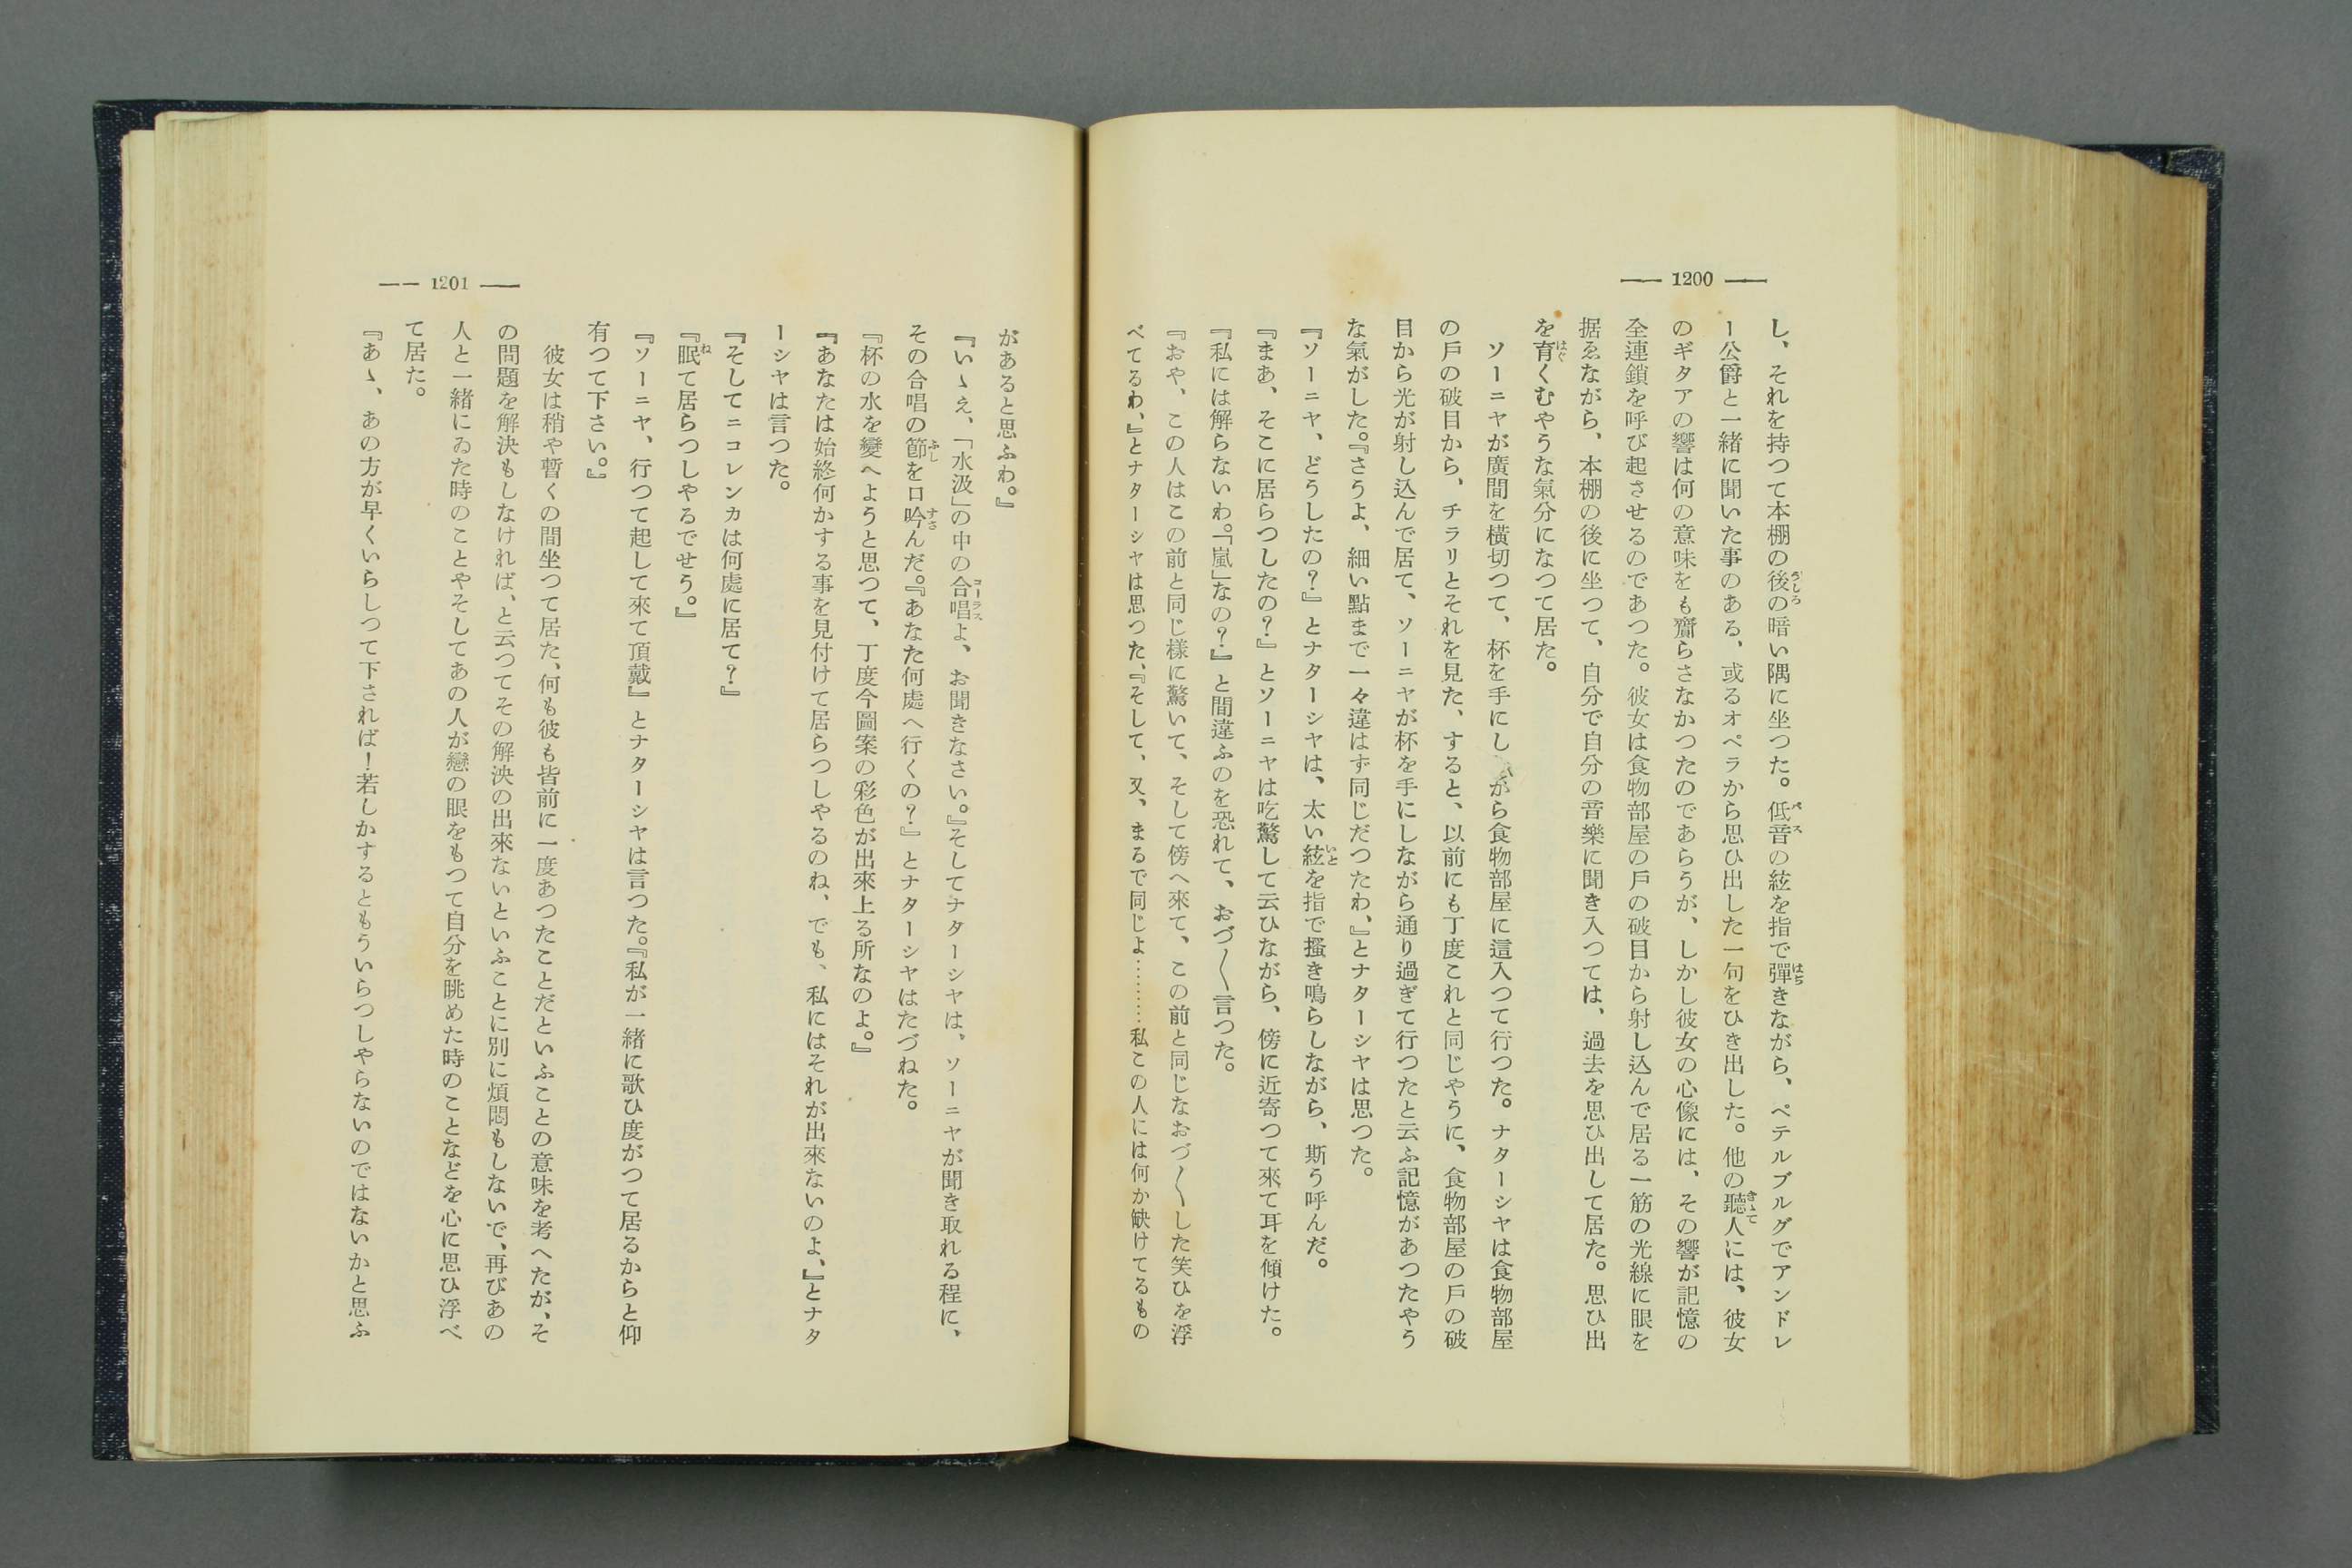 — 1200 —
し、それを持つて本棚の後の暗い隅に坐つた。低音の絃を指で彈きながら、ペテルブルグでアンドレ
ー公爵と一緒に聞いた事のある、或るオペラから思ひ出した一句をひき出した。他の聽人には、彼女
のギタアの響は何の意味をも齎らさなかつたのであらうが、しかし彼女の心像には、その響が記憶の
全連鎖を呼び起させるのであつた。彼女は食物部屋の戶の破目から射し込んで居る一筋の光線に眼を
据ゑながら、本棚の後に坐つて、自分で自分の音樂に聞き入つては、過去を思ひ出して居た。思ひ出
を育くむやうな氣分になつて居た。
ソーニヤが廣間を橫切つて、杯を手にし がら食物部屋に這入つて行つた。ナターシヤは食物部屋
の戶の破目から、チラリとそれを見た、すると、以前にも丁度これと同じやうに、食物部屋の戶の破
目から光が射し込んで居て、ソーニヤが杯を手にしながら通り過ぎて行つたと云ふ記憶があつたやう
な氣がした。『さうよ、細い點まで一々違はず同じだつたわ、』とナターシヤは思つた。
『ソーニヤ、どうしたの？』とナターシヤは、太い絃を指で搔き鳴らしながら、斯う呼んだ。
『まあ、そこに居らつしたの？』とソーニヤは吃驚して云ひながら、傍に近寄つて來て耳を傾けた。
『私には解らないわ。「嵐」なの？』と間違ふのを恐れて、おづ〱言つた。
『おや、この人はこの前と同じ樣に驚いて、そして傍へ來て、この前と同じなおづ〱した笑ひを浮
べてるわ、』とナターシヤは思つた、『そして、又、まるで同じよ………私この人には何か缺けてるもの
— 1201 —
があると思ふわ。』
『いゝえ、「水汲」の中の合唱よ、お聞きなさい。』そしてナターシヤは、ソーニヤが聞き取れる程に、
その合唱の節を口吟んだ。『あなた何處へ行くの？』とナターシヤはたづねた。
『杯の水を變へようと思つて、丁度今圖案の彩色が出來上る所なのよ。』
『あなたは始終何かする事を見付けて居らつしやるのね、でも、私にはそれが出來ないのよ、』とナタ
ーシヤは言つた。
『そしてニコレンカは何處に居て？』
『眠て居らつしやるでせう。』
『ソーニヤ、行つて起して來て頂戴』とナターシヤは言つた。『私が一緒に歌ひ度がつて居るからと仰
有つて下さい。』
彼女は稍や暫くの間坐つて居た、何も彼も皆前に一度あつたことだといふことの意味を考へたが、そ
の問題を解決もしなければ、と云つてその解決の出來ないといふことに別に煩悶もしないで、再びあの
人と一緒にゐた時のことやそしてあの人が戀の眼をもつて自分を眺めた時のことなどを心に思ひ浮べ
て居た。
『あゝ、あの方が早くいらしつて下されば！若しかするともういらつしやらないのではないかと思ふ